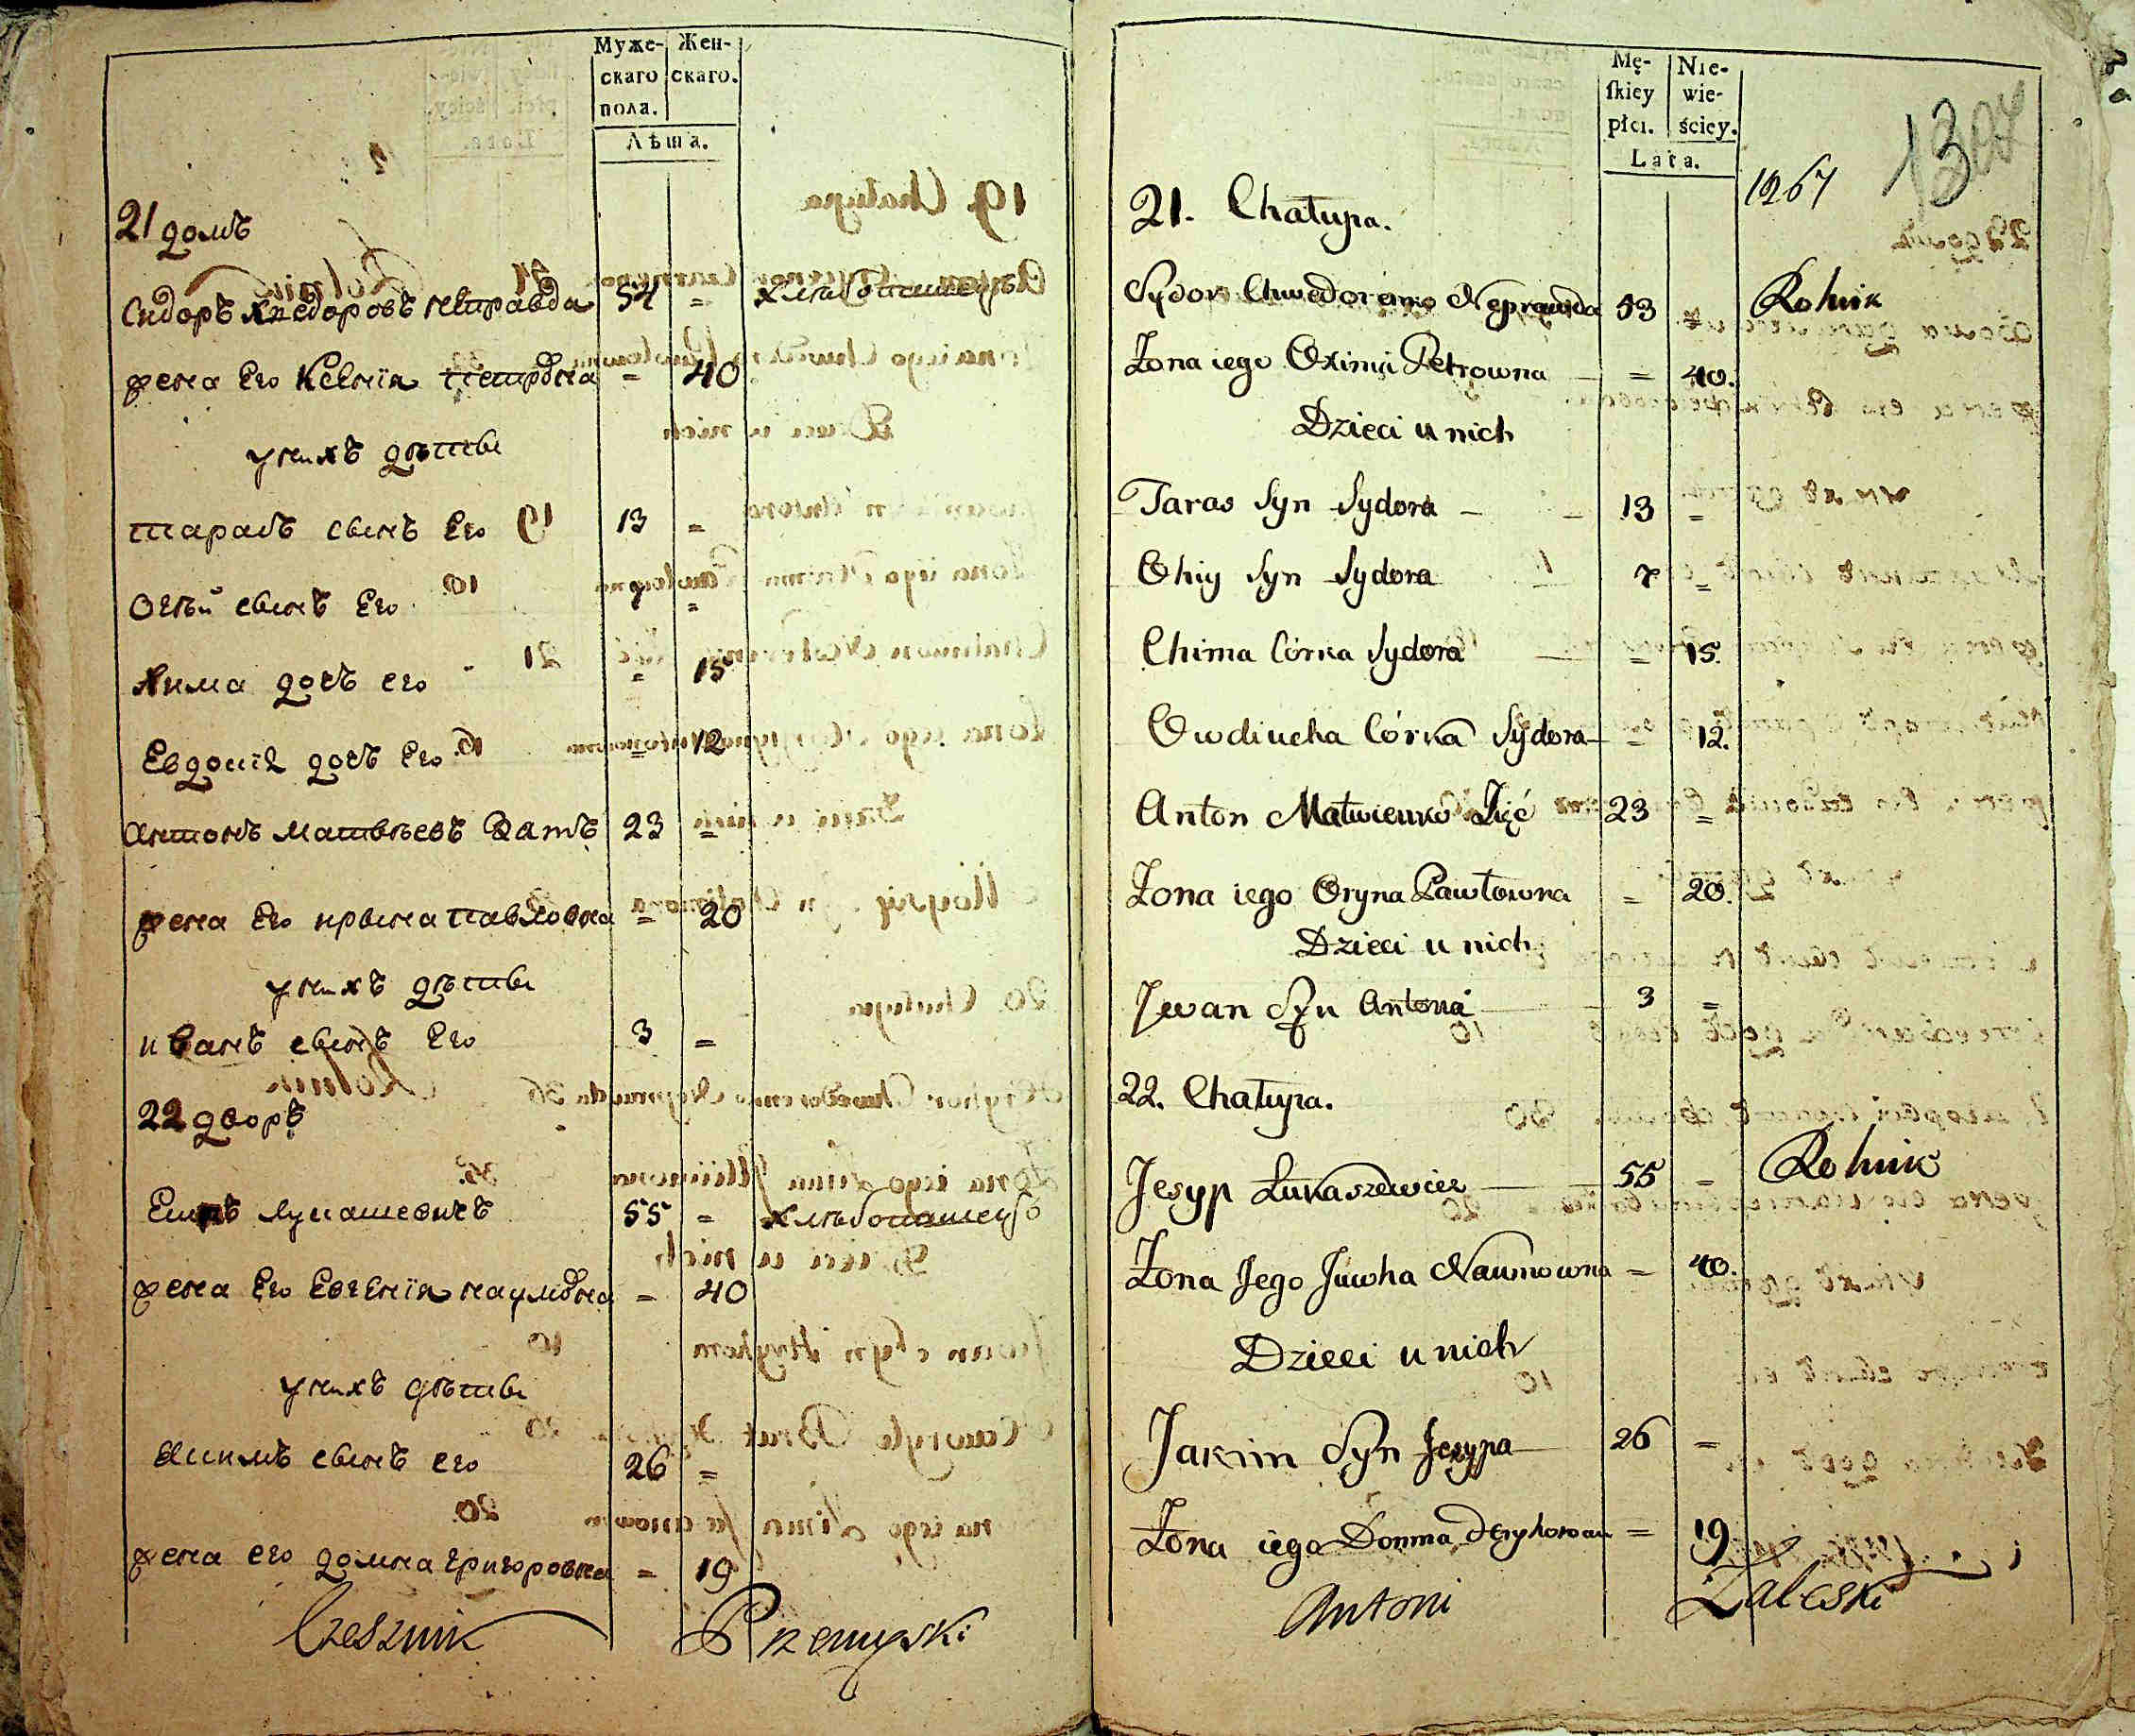 Муже-
скаго
пола.
Жен-
скаго.
Лѣта.
21 домъ
Сидоръ Хведоровъ неправда 54 = хлѣбопашецъ
жена Его Ксенїя петровна = 40
у нихъ дѣти
тарасъ сынъ Его 13 =
огѣй сынъ Его 7 =
Хима дочь его = 15
Евдокїя дочь Его = 12
антонъ матвѣевъ Зять 23 =
жена Его ирына павловна = 20
у нихъ дѣти
иванъ сынъ Его 3 =
22 дворъ
лукашевичъ 55 = хлѣбопашецъ
жена Его Евгенїя наумовна = 40
у нихъ дѣти
Якимъ сынъ его 26 =
жена его домна григоровна = 19
Czesznik Przemyski
Mę-
ſkiey
płci.
Nie-
wie-
ściey.
Lata.
1267
21. Chałupa.
Sydor Chwedorenko Neprawda 53 = Rolnik
Żona iego Oximia Petrowna = 40.
Dzieci u nich
Taras Syn Sydora 13 =
Ohiy Syn Sydora 7 =
Chima Córka Sydora = 15.
Owdiucha Córka Sydora = 12.
Anton Matwienko Zięć 23 =
Żona iego Oryna Pawłowna = 20.
Dzieci u nich
Jwan Syn Antona 3 =
22. Chałupa.
Jesyp Łukaszewicz 55 = Rolnik
Żona Jego Juwha Naumowna = 40.
Dzieci u nich
Jakim Syn Jesypa 26 =
Żona iego Domna = 19
Antoni Zaleski